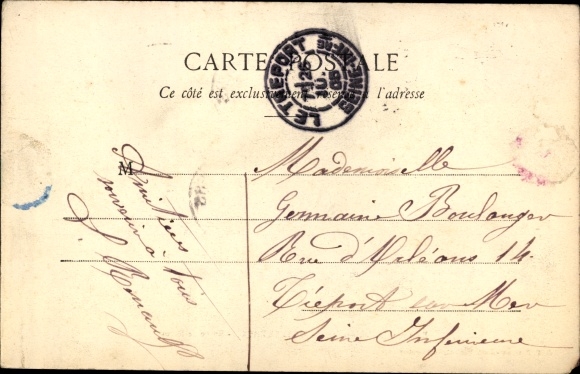 CARTE POSTALE
Ce côté est exclusivement réservé à l'adresse
LE TREPORT
SEINE-INFRE
7 26
JU
M
Mademoiselle
Germaine Boulanger
Rue d'Orléans 14
Tréport sur Mer
Seine Inferieure
Amitiées
souvenir à
tous
S. Renault